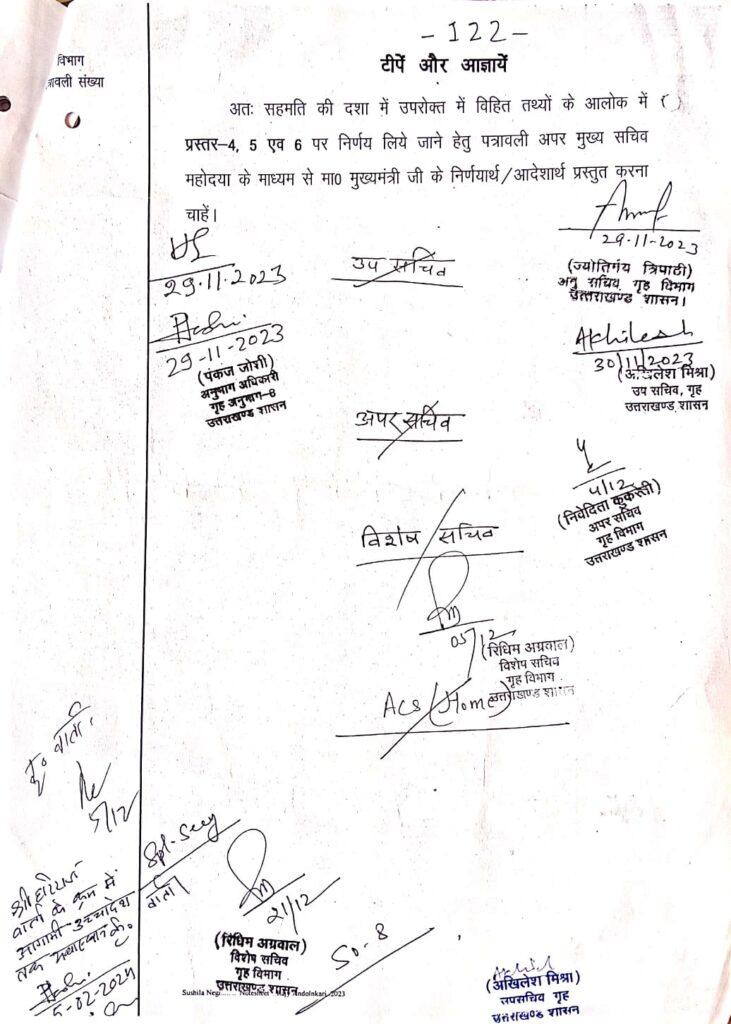 -122-
टीपें और आज्ञायें
विभाग
त्रावली संख्या
अतः सहमति की दशा में उपरोक्त में विहित तथ्यों के आलोक में
प्रस्तर-4, 5 एव 6 पर निर्णय लिये जाने हेतु पत्रावली अपर मुख्य सचिव
महोदया के माध्यम से मा0 मुख्यमंत्री जी के निर्णयार्थ/आदेशार्थ प्रस्तुत करना
चाहें।
29.11.2023
(ज्योतिर्मय त्रिपाठी)
अनु सचिव, गृह विभाग
उत्तराखण्ड शासन।
उप सचिव
29.11.2023
29-11-2023
(पंकज जोशी)
अनुभाग अधिकारी
गृह अनुभाग-8
उत्तराखण्ड शासन
Akhilesh
30/11/2023
(अखिलेश मिश्रा)
उप सचिव, गृह
उत्तराखण्ड शासन
अपर सचिव
4/12
(निवेदिता कुकरेती)
अपर सचिव
गृह विभाग
उत्तराखण्ड शासन
विशेष सचिव
05/12
(रिधिम अग्रवाल)
विशेष सचिव
गृह विभाग
उत्तराखण्ड शासन
ACS (Home)
वार्ता
5/12
Spl-Secy
वार्ता
21/12
(रिधिम अग्रवाल)
विशेष सचिव
गृह विभाग
उत्तराखण्ड शासन
SO-8
आगामी उच्चादेश
तक
5-02-2024
Sushila Negi
2023
(अखिलेश मिश्रा)
उपसचिव गृह
उत्तराखण्ड शासन